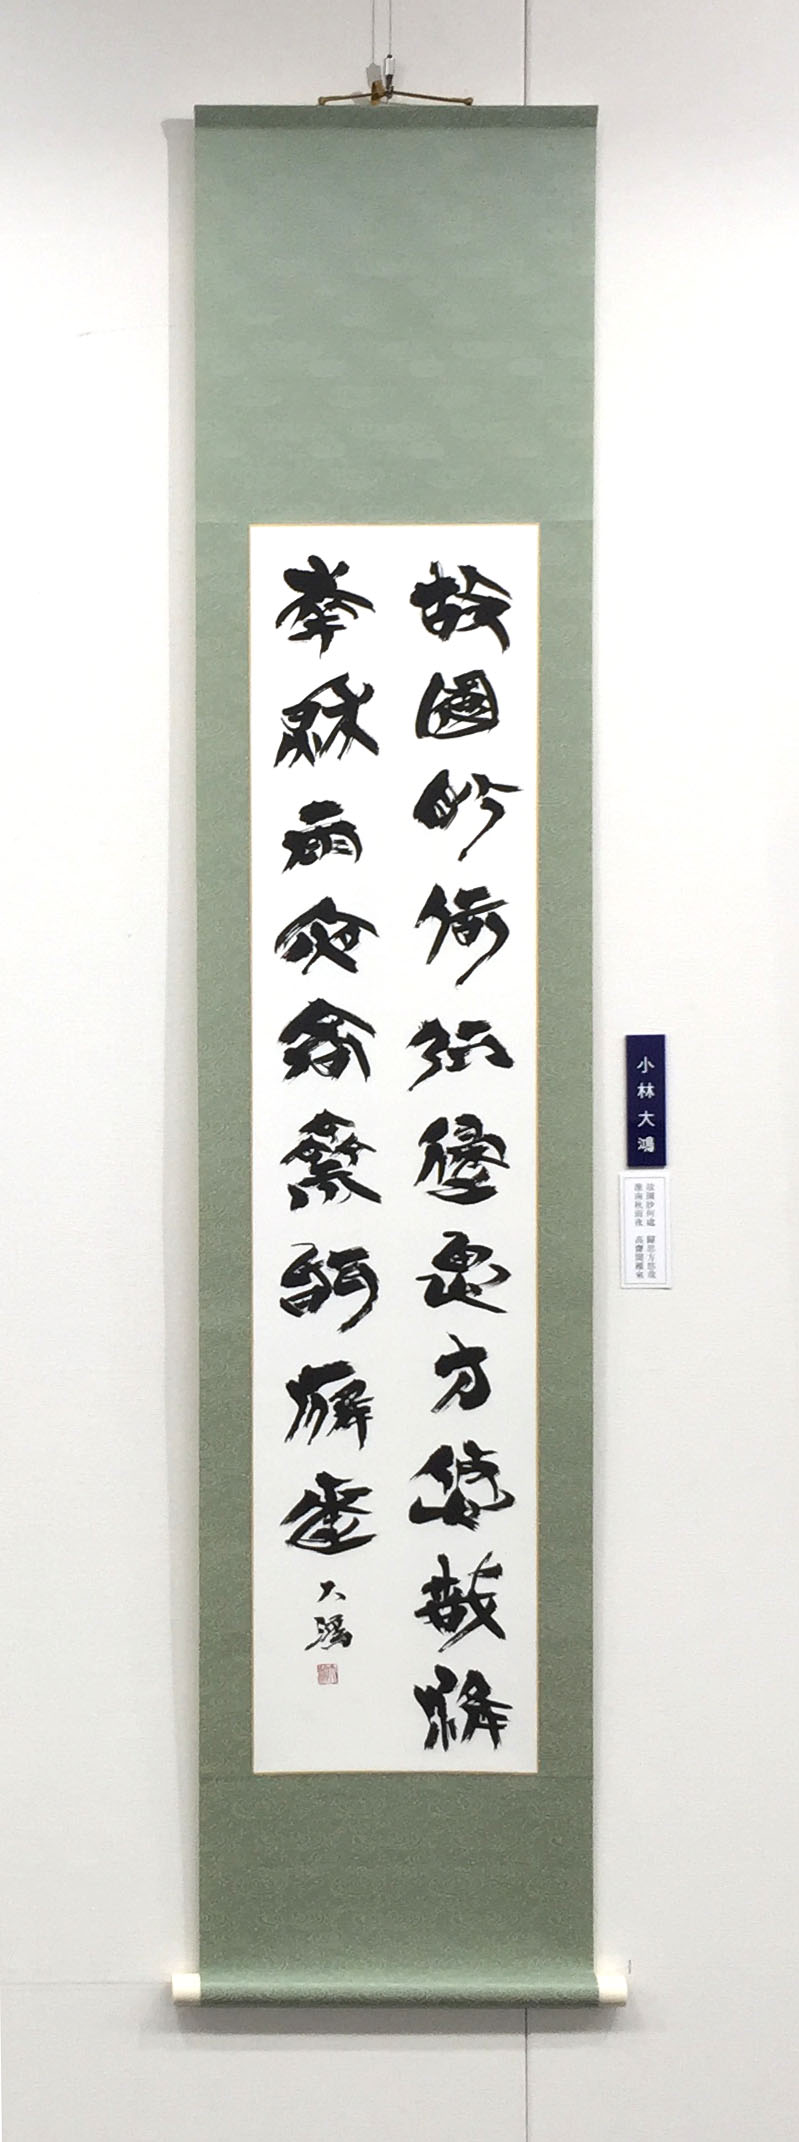 故園眇何処思方悠哉淮
南秋雨夜高斎聞雁来
大鴻
小林大鴻
故園渺何處　歸思方悠哉
淮南秋雨夜　高齋聞雁來